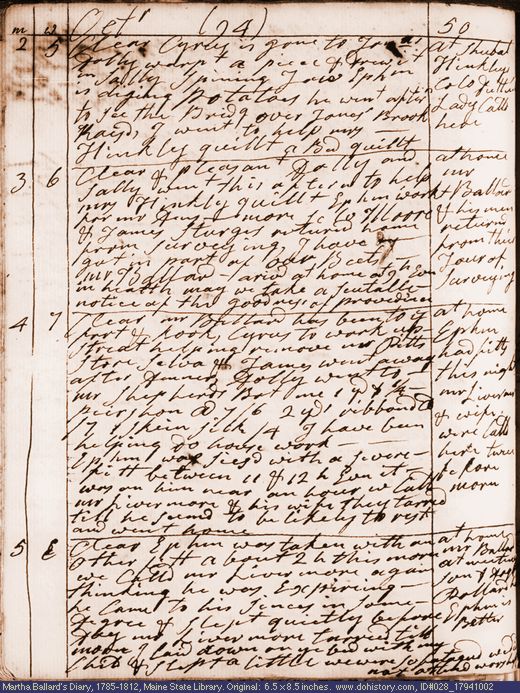 m w Oct (24) 50
2 5 Clear Cyrus is gone to
Dolly warpt a piece & drew it
in Sally Spining Jack Ephm
is diging Potatoes he went after
to see the Bridg over Jones Brook
I went to help mrs
Hinkley quillt a Bed quillt
at Shubal
Hinkleys
Lady Calld
here
3 6 Clear & pleasant Dolly and
Sally went this aftern to help
mrs Hinkley quillt Ephm workt
for mr
& James Sturges returned home
from Surveying I have
gut in part of our Beets
mr Ballard arivd at home at Evn
in health may we take a suitable
notice of the goodness of providence
at home
mr
Ballard
& his men
returnd
from this
Tour of
Surveying
4 7 Clear mr Ballard has been to ye
port & hook Cyrus to work up
Street helping remove mr Pitts
Store & James went away
after dinner Dolly went to
mr Shepherds Bot me 1 yd &
7/6 2 yds ribbond
1 skein silk /4 I have been
helping do house work
Ephm was siesd with a severe
fitt between 11 & 12 h Evn it
was on him near an hour we Calld
mr Livermore & his wife they tarried
till he seemd to be likely to rest
and went home
at home
Ephm
had fitts
this night
mr Livermore
& wife
were Calld
here twice
before
morn
5 E Clear Ephm was taken with an
other fitt about 2 h this morn
we Calld mr Livermore again
thinking he was Expiring
he Came to his Sences in Some
Degree & slept quietly before
Day mr Livermore tarried till
morn I laid down on ye bed with my
Child & slept a little
at home
mr Ballard
at meeting
son &
Pollard
Ephm is
Better
Martha Ballard's Diary, 1785-1812, Maine State Library. Original: 6.5 x 8.5 inches. www.dohistory.com, ID#028_17941002